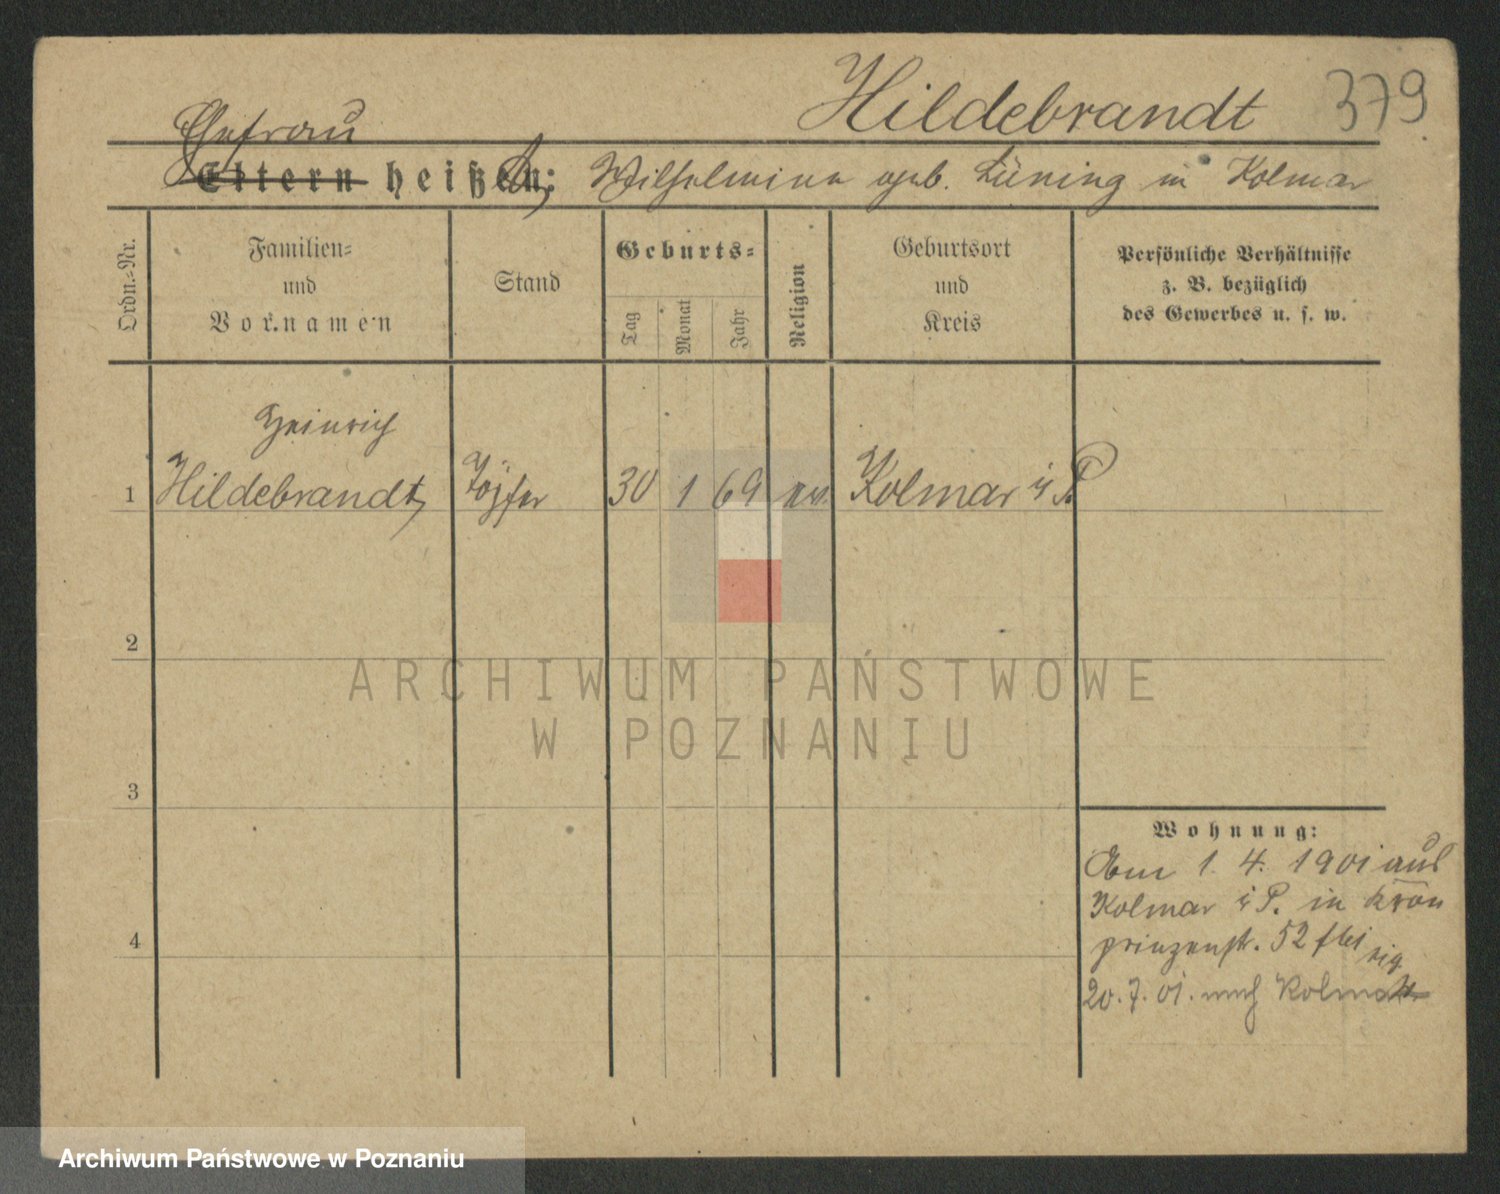 Hildebrandt 379
Ehefrau
Eltern heißen: Wilhelmine geb. Lüning in Kolmar
Ordn.-Nr.
Familien-
und
Vornamen
Stand
Geburts-
Tag
Monat
Jahr
Religion
Geburtsort
und
Kreis
Persönliche Verhältnisse
z. B. bezüglich
des Gewerbes u. s. w.
Heinrich
1 Hildebrandt, Töpfer 30 1 69 ev. Kolmar i/P
2
ARCHIWUM PAŃSTWOWE
W POZNANIU
3
Wohnung:
Am 1. 4. 1901 aus
Kolmar i P. in Kron
prinzenstr. 52 fbei
20. 7. 01. nach Kolmar
4
Archiwum Państwowe w Poznaniu